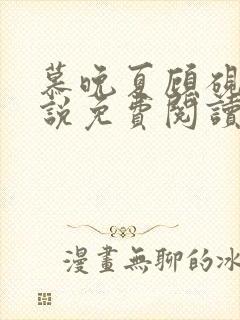 慕晚夏顧硯
說免費閱讀
漫畫無聊的冰